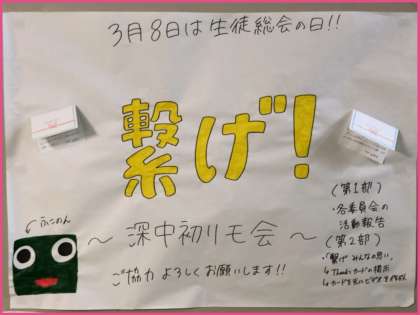 3月8日は生徒総会の日!!
繋げ!
～ 深中初リモ会 ～
ご協力 よろしくお願いします!!
(第1部)
・各委員会の
活動報告
(第2部)
・「繋げ みんなの思い」
↳ Thanksカードの掲示